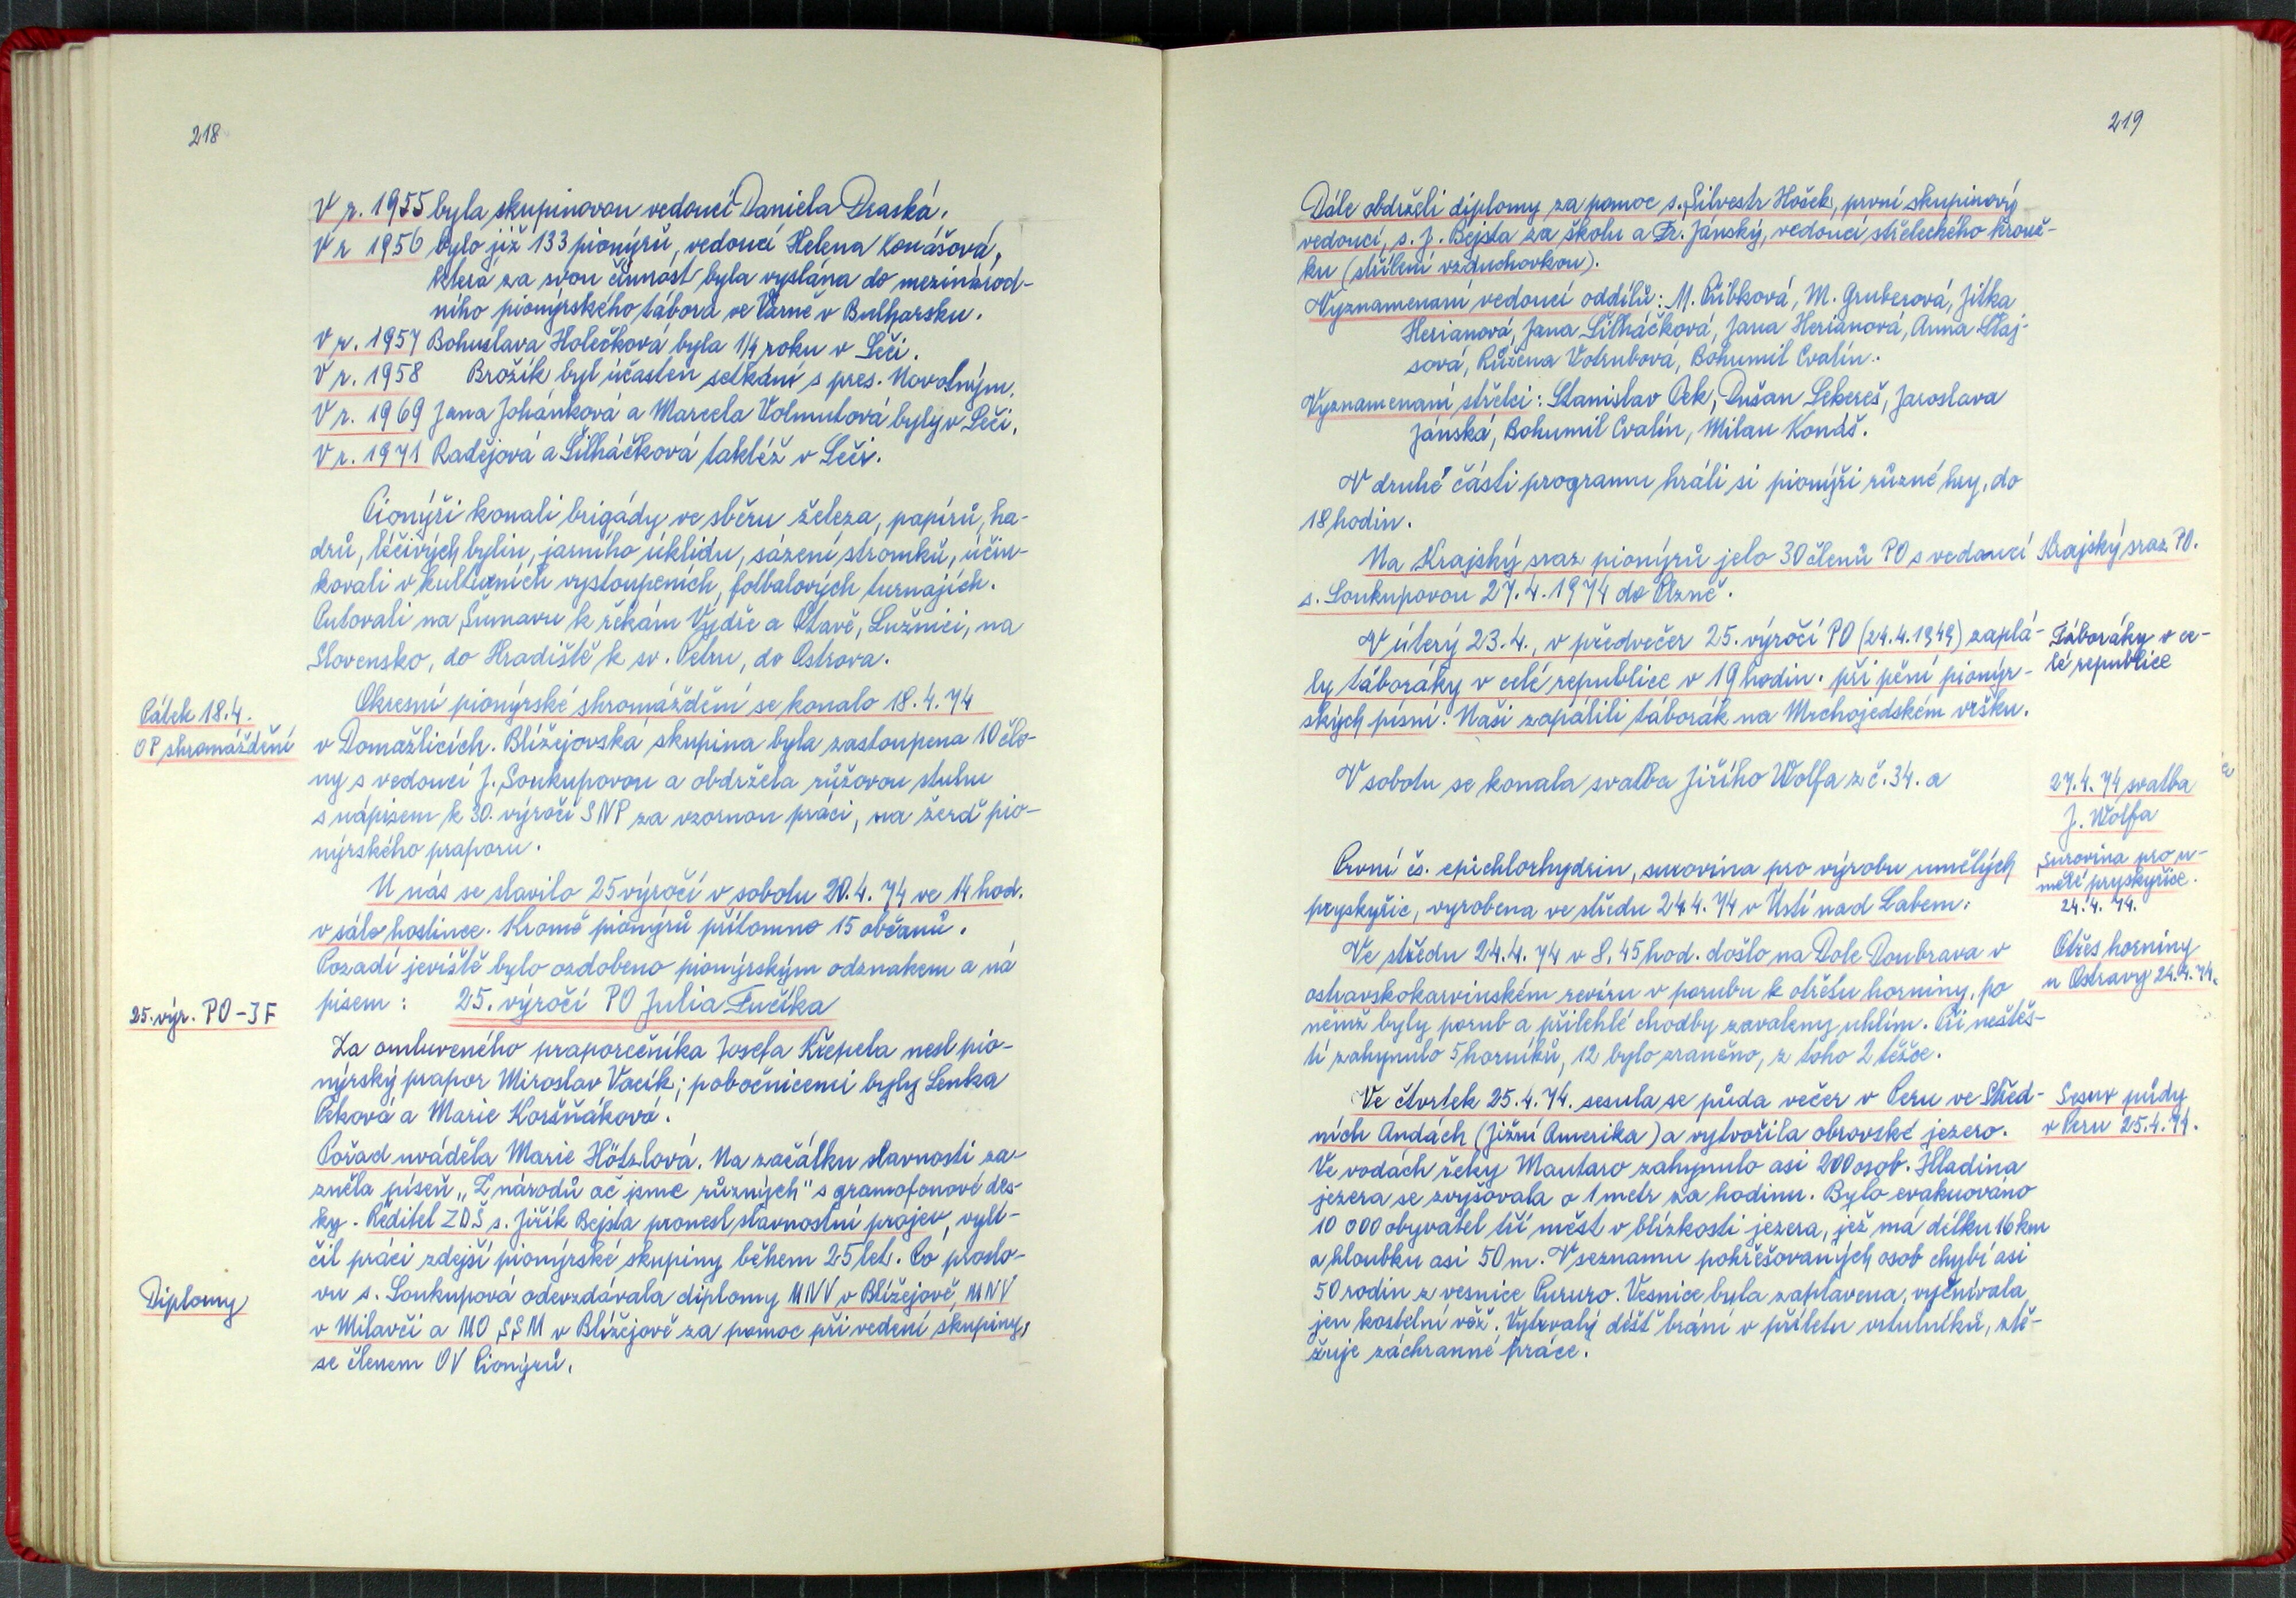 218
V r. 1955 byla skupinovou vedoucí Daniela Draská.
V r 1956 bylo již 133 pionýrů, vedoucí Helena Konášová,
která za svou činnost byla vyslána do mezinárod-
ního pionýrského tábora ve Varně v Bulharsku.
V r. 1957 Bohuslava Holečková byla 1/4 roku v Seči.
V r. 1958 Brožík byl účasten setkání s pres. Novotným.
V r. 1969 Jana Johánková a Marcela Volmutová byly v Seči.
V r. 1971 Radějová a Šilháčková taktéž v Seči.
Pionýři konali brigády ve sběru železa, papírů, ha-
drů, léčivých bylin, jarního úklidu, sázení stromků, účin-
kovali v kulturních vystoupeních, fotbalových turnajích.
Putovali na Šumavu k řekám Vydře a Otavě, Lužnici, na
Slovensko, do Hradiště k sv. Petru, do Ostrova.
Pátek 18.4.
OP shromáždění
Okresní pionýrské shromáždění se konalo 18.4.74
v Domažlicích. Blížejovská skupina byla zastoupena 10 čle-
ny s vedoucí J. Soukupovou a obdržela růžovou stuhu
s nápisem k 30. výročí SNP za vzornou práci, na žerď pio-
nýrského praporu.
U nás se slavilo 25 výročí v sobotu 20.4.74 ve 14 hod.
v sále hostince. Kromě pionýrů přítomno 15 občanů.
Pozadí jeviště bylo ozdobeno pionýrským odznakem a ná
pisem: 25. výročí PO Julia Fučíka
25. výr. PO-JF
Za omluveného praporečníka Josefa Křepela nesl pio-
nýrský prapor Miroslav Vacík; pobočnicemi byly Lenka
Peková a Marie Koršňáková.
Pořad uváděla Marie Hötzlová. Na začátku slavnosti za-
zněla píseň „Z národů ač jsme různých" s gramofonové des-
ky. Ředitel ZDŠ s. Jiřík Bejsta pronesl slavnostní projev, vylí-
čil práci zdejší pionýrské skupiny během 25 let. Po proslo-
vu s. Soukupová odevzdávala diplomy MNV v Blížejově, MNV
v Milavči a MO SSM v Blížejově za pomoc při vedení skupiny,
se členem OV Pionýrů.
Diplomy
219
Dále obdrželi diplomy za pomoc s. Silvestr Hošek, první skupinový
vedoucí, s. J. Bejsta za školu a Fr. Jánský, vedoucí střeleckého krouž-
ku (střílení vzduchovkou).
Vyznamenaní vedoucí oddílů: M. Pibková, M. Gruberová, Jitka
Herianová, Jana Šilháčková, Jana Herianová, Anna Staj-
sová, Růžena Votrubová, Bohumil Cvalín.
Vyznamenaní střelci: Stanislav Pek, Dušan Sekereš, Jaroslava
Jánská, Bohumil Cvalín, Milan Konáš.
V druhé části programu hráli si pionýři různé hry, do
18 hodin.
Na Krajský sraz pionýrů jelo 30 členů PO s vedoucí
s. Soukupovou 27.4.1974 do Plzně.
Krajský sraz PO.
V úterý 23.4., v předvečer 25. výročí PO (24.4.1949) zaplá-
ly táboráky v celé republice v 19 hodin. při pění pionýr-
ských písní. Naši zapálili táborák na Mrchojedském vršku.
Táboráky v ce-
lé republice
V sobotu se konala svatba Jiřího Wolfa z č. 34. a
27.4.74 svatba
J. Wolfa
První čs. epichlorhydrin, surovina pro výrobu umělých
pryskyřic, vyrobena ve středu 24.4.74 v Ústí nad Labem.
Surovina pro u-
mělé pryskyřice.
24.4.74.
Ve středu 24.4.74 v 8,45 hod. došlo na Dole Doubrava v
ostravskokarvinském revíru v porubu k otřesu horniny, po
němž byly porub a přilehlé chodby zavaleny uhlím. Při neštěs-
tí zahynulo 5 horníků, 12 bylo zraněno, z toho 2 těžce.
Otřes horniny
u Ostravy 24.4.74.
Ve čtvrtek 25.4.74. sesula se půda večer v Peru ve Střed-
ních Andách (Jižní Amerika) a vytvořila obrovské jezero.
Ve vodách řeky Mantaro zahynulo asi 200 osob. Hladina
jezera se zvyšovala o 1 metr za hodinu. Bylo evakuováno
10 000 obyvatel tří měst v blízkosti jezera, jež má délku 16 km
a hloubku asi 50 m. V seznamu pohřešovaných osob chybí asi
50 rodin z vesnice Pururo. Vesnice byla zaplavena, vyčnívala
jen kostelní věž. Vytrvalý déšť brání v příletu vrtulníků, ztě-
žuje záchranné práce.
Sesuv půdy
v Peru 25.4.74.